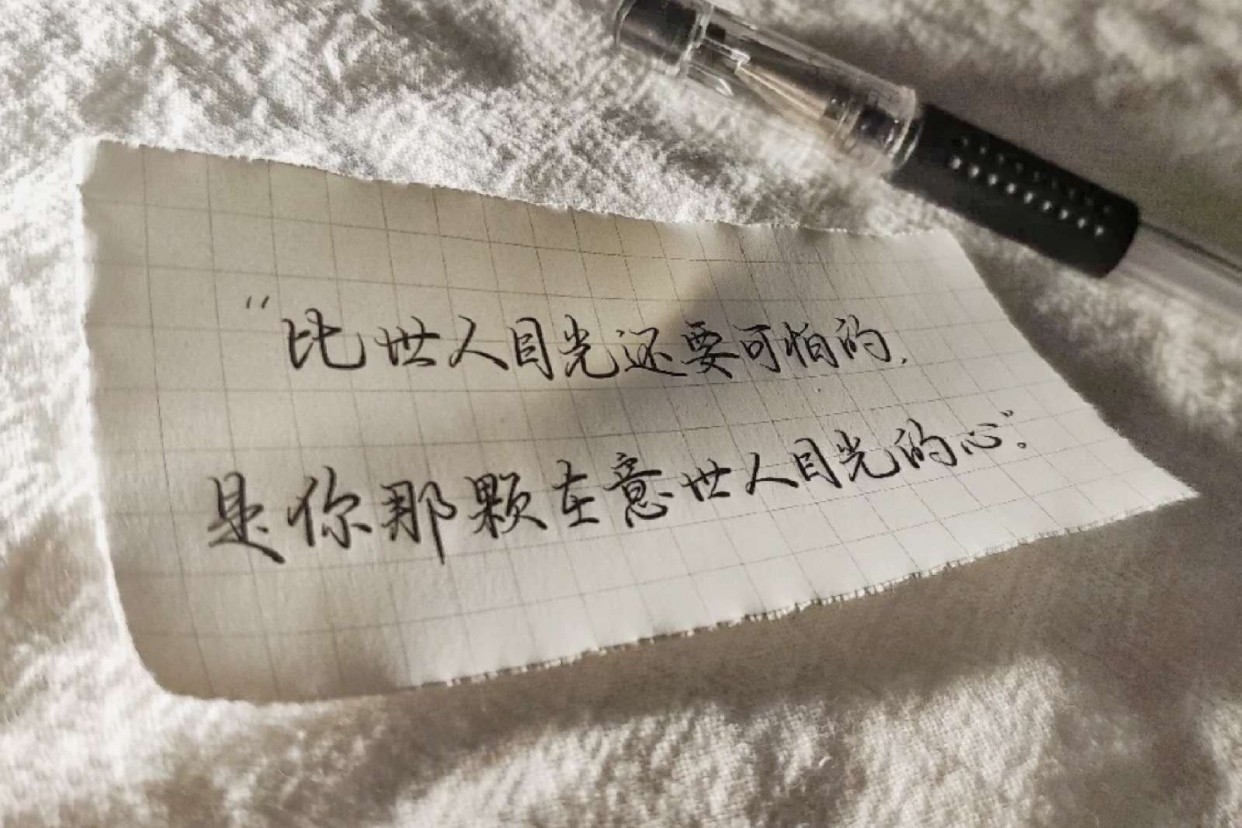 “比世人目光还要可怕的，
是你那颗在意世人目光的心”。